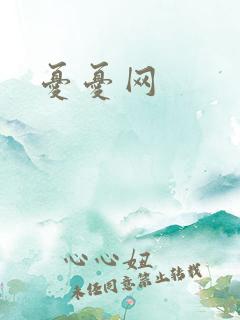 憂憂网
心心妞
未经同意禁止转载